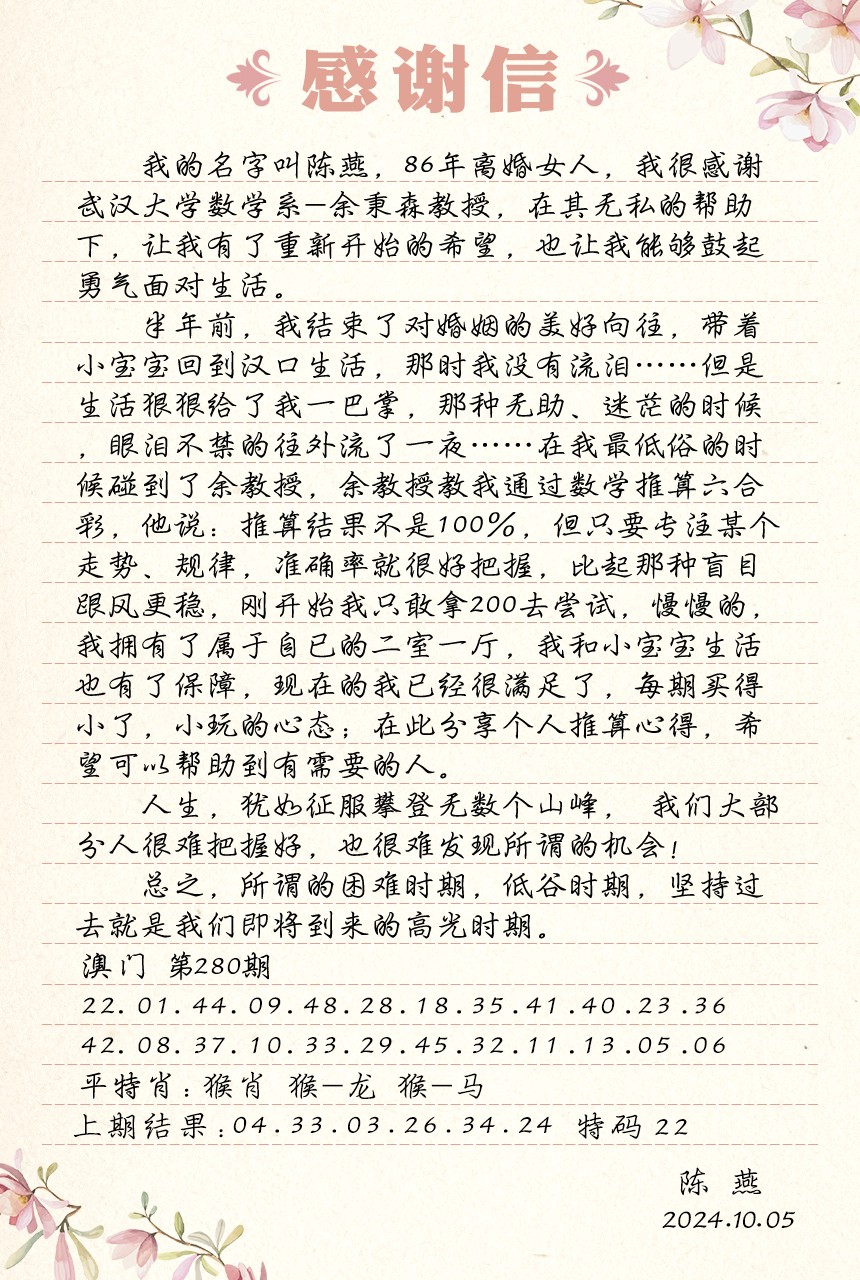 感谢信
我的名字叫陈燕，86年离婚女人，我很感谢
武汉大学数学系—余秉森教授，在其无私的帮助
下，让我有了重新开始的希望，也让我能够鼓起
勇气面对生活。
半年前，我结束了对婚姻的美好向往，带着
小宝宝回到汉口生活，那时我没有流泪……但是
生活狠狠给了我一巴掌，那种无助、迷茫的时候
，眼泪不禁的往外流了一夜……在我最低俗的时
候碰到了余教授，余教授教我通过数学推算六合
彩，他说：推算结果不是100%，但只要专注某个
走势、规律，准确率就很好把握，比起那种盲目
跟风更稳，刚开始我只敢拿200去尝试，慢慢的，
我拥有了属于自已的二室一厅，我和小宝宝生活
也有了保障，现在的我已经很满足了，每期买得
小了，小玩的心态；在此分享个人推算心得，希
望可以帮助到有需要的人。
人生，犹如征服攀登无数个山峰， 我们大部
分人很难把握好，也很难发现所谓的机会！
总之，所谓的困难时期，低谷时期，坚持过
去就是我们即将到来的高光时期。
澳门 第280期
22.01.44.09.48.28.18.35.41.40.23.36
42.08.37.10.33.29.45.32.11.13.05.06
平特肖:猴肖 猴—龙 猴—马
上期结果:04.33.03.26.34.24 特码 22
陈 燕
2024.10.05